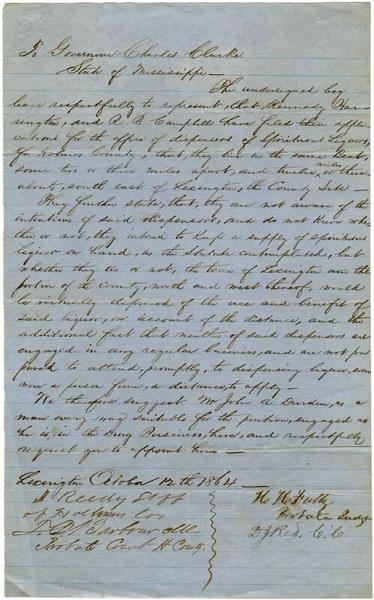 To Governor Charles Clarke
State of Mississippi —
The undersigned beg
leave respectfully to represent, that, Kennedy Har-
rington, and R. B. Campbell have filed their appli-
cations for the office of dispensers of Spirituous Liquors,
for Holmes County, that, they live in the same Beat,
some two or three miles apart, and twelve, or there
miles
abouts, south east of Lexington, the County Site —
They further state, that, they are not aware of the
intentions of said dispensors, and do not know whe-
ther or not, they intend to keep a supply of spirituous
liquor on hand, as the Statute contemplated, but
whether they do or not, the town of Lexington and the
portion of the county, north and west thereof, would
be virtually deprived of the use and benefit of
said liquor, on account of the distance, and the
additional fact that neither of said dispensors are
engaged in any regular business, and are not pre
pared to attend, promptly, to dispensing liquor, even
were a person from a distance, to apply —
We therefore suggest Mr John A Durden, as
a man every way suitable for the position, engaged as
he is in the Drug Business, here, and respectfully
request you to appoint him —
Lexington October 12th 1864
Reedy Shff
of Holmes Co
Barbour Clk
Probate Court H Couy.
H H
Probate Judge
D J Red, C. C.